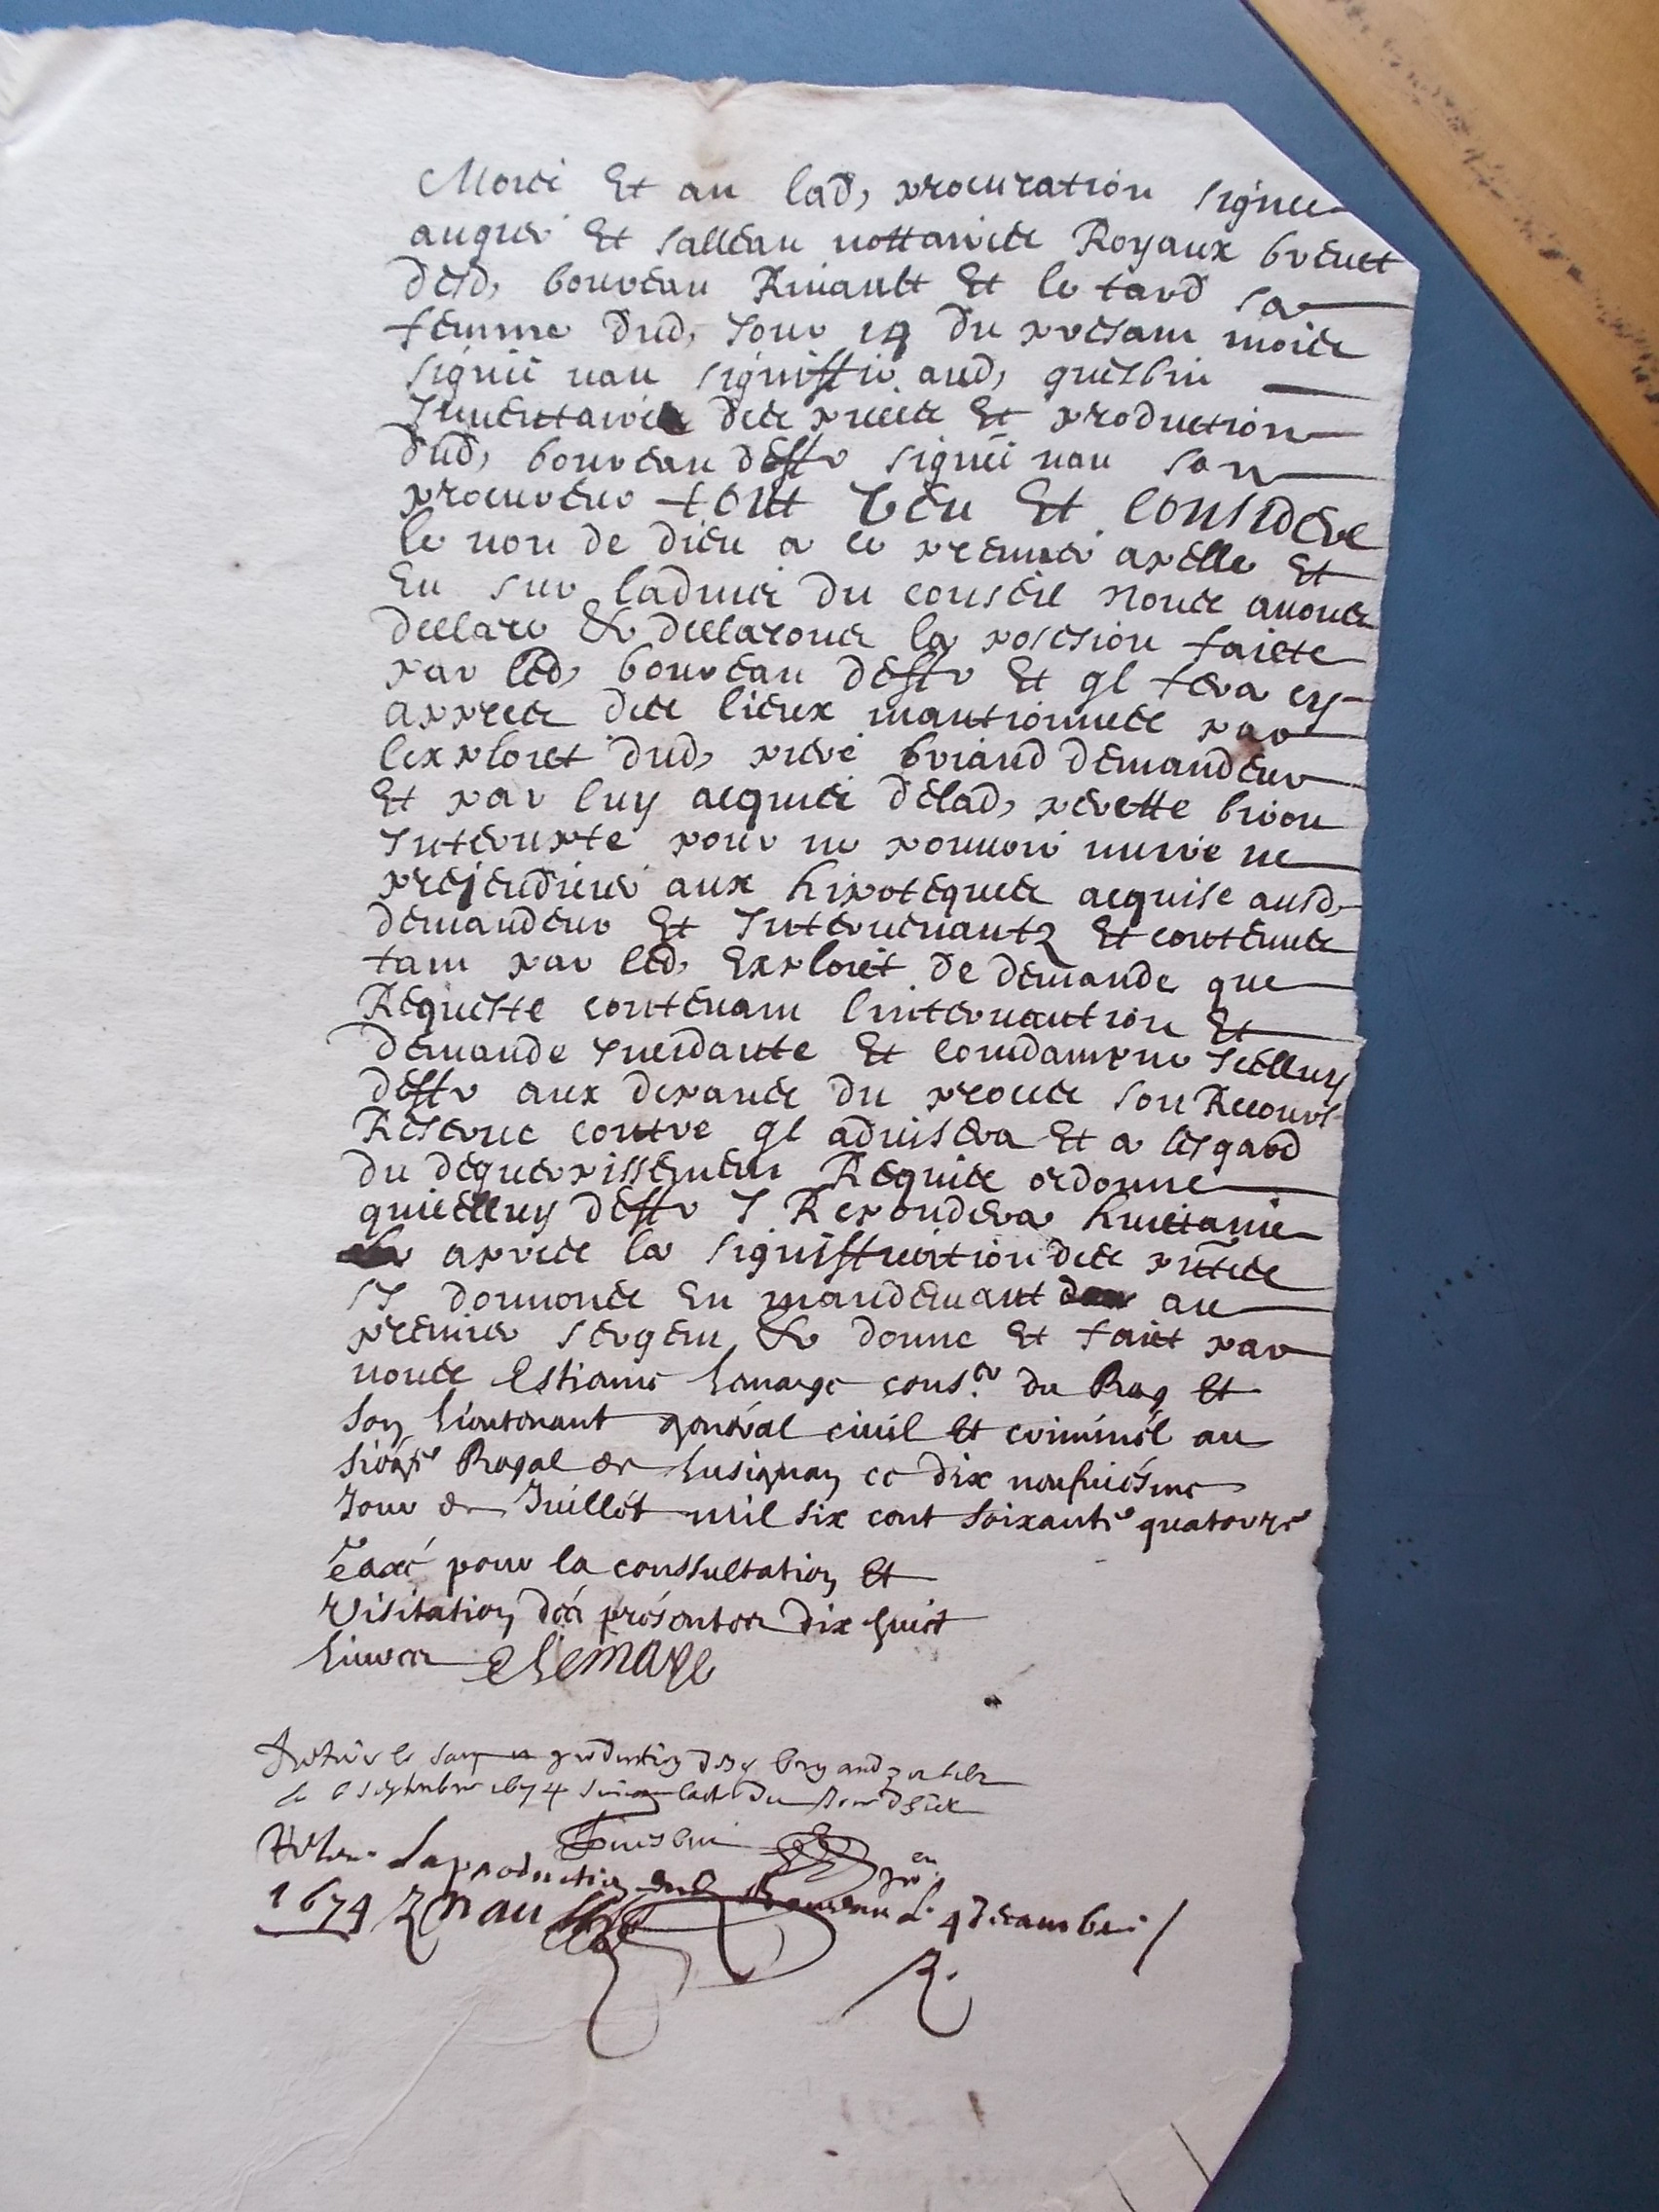 Mois Et au lad, procuration signee
augier Et salleau nottaires Royaux brevet
desd, boureau Et le tard sa
femme dud, Jour 19 du presant mois
signé nau signiffié aud, guesbin
Inventaires des pieces Et production
dud, boureau deffr signé nau son
procureur tout veu Et considere
le non de dieu a ce premier apelle Et
Eu sur ladvis du conseil Nous avons
declare & declarons la possesion faicte
par led, boureau deffr Et ql fera cy
appres des lieux mantionnes par
lexploict dud, briand demandeur
Et par luy acquis delad, perette
Interupte pour ne pouvoir nuire ne
prejeudicier aux hipoteques acquise ausd,
demandeur Et Intervenantz Et contenue
tam par led, Exploict de demande que
Requeste contenam lintervantion Et
demande Insidante Et condampne Icelluy
deffr aux depans du proces son Recours
Reserve contre ql advisera Et a lesgard
du deguerpissemem Requis ordonne
quicelluy deffr I Repondera huictanie
apres la signiffication des pntes
SY donnons En mandemant au
premier sergem & donne Et faict par
nous Estienne Lemaye consr du Roy Et
son lieutenant general civil Et criminel au
siege Royal de Lusignan ce dix neufviesme
Jour de Juillet mil six cent soixante quatorze
Taxé pour la conssultation Et
visitation des presentes dix huict
livres Lemaye
Retire le sacq production
le septembre 1674
Guesbin
Retire La production dud Boureau Le 4 decambre /
1674 nau
R.